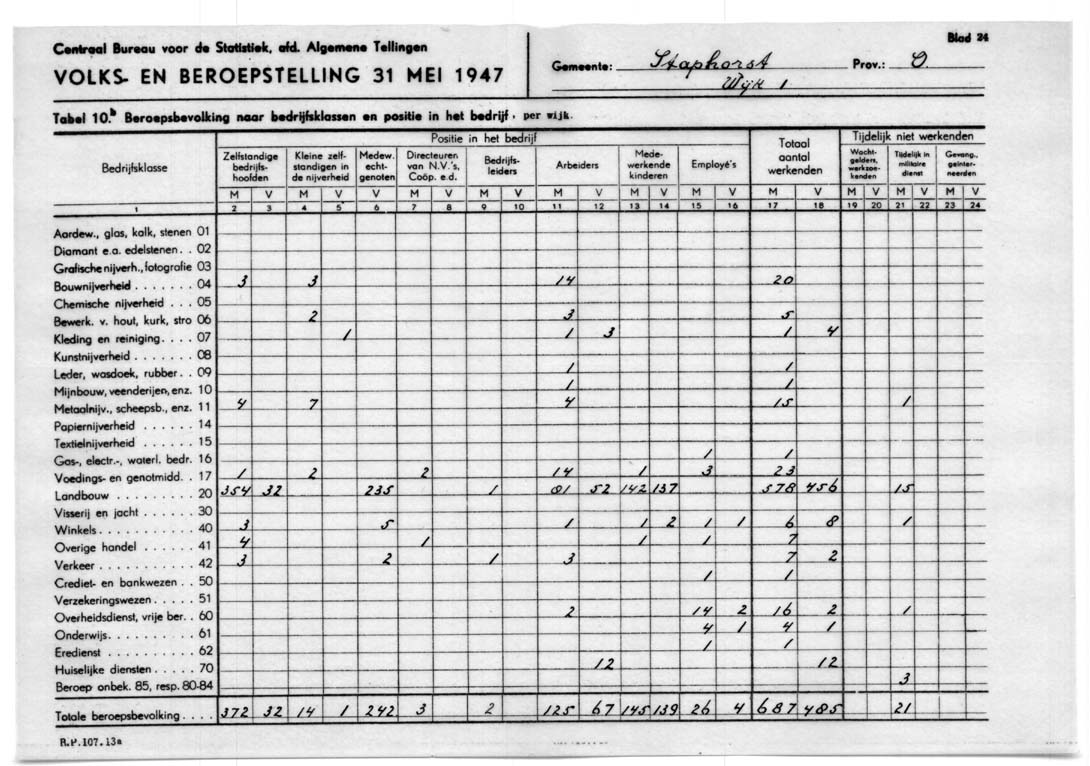 Blad 24
Centraal Bureau voor de Statistiek, afd. Algemene Tellingen
VOLKS- EN BEROEPSTELLING 31 MEI 1947
Gemeente: Staphorst Prov.: O.
Wijk 1
Tabel 10.b Beroepsbevolking naar bedrijfsklassen en positie in het bedrijf, per wijk.
Bedrijfsklasse
Positie in het bedrijf
Totaal aantal werkenden
Tijdelijk niet werkenden
Zelfstandige bedrijfs-hoofden
Kleine zelf-standigen in de nijverheid
Medew. echt-genoten
Directeuren van N.V.'s, Coöp. e.d.
Bedrijfs-leiders
Arbeiders
Mede-werkende kinderen
Employé's
Wacht-gelders, werkzoe-kenden
Tijdelijk in militaire dienst
Gevang., geïnter-neerden
M V M V V M V M V M V M V M V M V M V M V M V
1 2 3 4 5 6 7 8 9 10 11 12 13 14 15 16 17 18 19 20 21 22 23 24
Aardew., glas, kalk, stenen 01
Diamant e.a. edelstenen . . 02
Grafische nijverh., fotografie 03
Bouwnijverheid . . . . . 04 3 3 14 20
Chemische nijverheid . . . 05
Bewerk. v. hout, kurk, stro 06 2 3 5
Kleding en reiniging . . . . 07 1 1 3 1 4
Kunstnijverheid . . . . . . 08
Leder, wasdoek, rubber . . 09 1 1
Mijnbouw, veenderijen, enz. 10 1 1
Metaalnijv., scheepsb., enz. 11 4 7 4 15 1
Papiernijverheid . . . . . . 14
Textielnijverheid . . . . . 15
Gas-, electr.-, waterl. bedr. 16 1 1
Voedings- en genotmidd. . . 17 1 2 2 14 1 3 23
Landbouw . . . . . . . 20 354 32 235 1 81 52 142 137 578 456 15
Visserij en jacht . . . . . 30
Winkels . . . . . . . . . 40 3 5 1 1 2 1 1 6 8 1
Overige handel . . . . . . 41 4 1 1 1 7
Verkeer . . . . . . . . . 42 3 2 1 3 7 2
Crediet- en bankwezen . . 50 1 1
Verzekeringswezen . . . . . 51
Overheidsdienst, vrije ber. . . 60 2 14 2 16 2 1
Onderwijs . . . . . . . . 61 4 1 4 1
Eredienst . . . . . . . . 62 1 1
Huiselijke diensten . . . . . 70 12 12
Beroep onbek. 85, resp. 80-84 3
Totale beroepsbevolking . . . . 372 32 14 1 242 3 2 125 67 145 139 26 4 687 485 21
R.P.107.13a